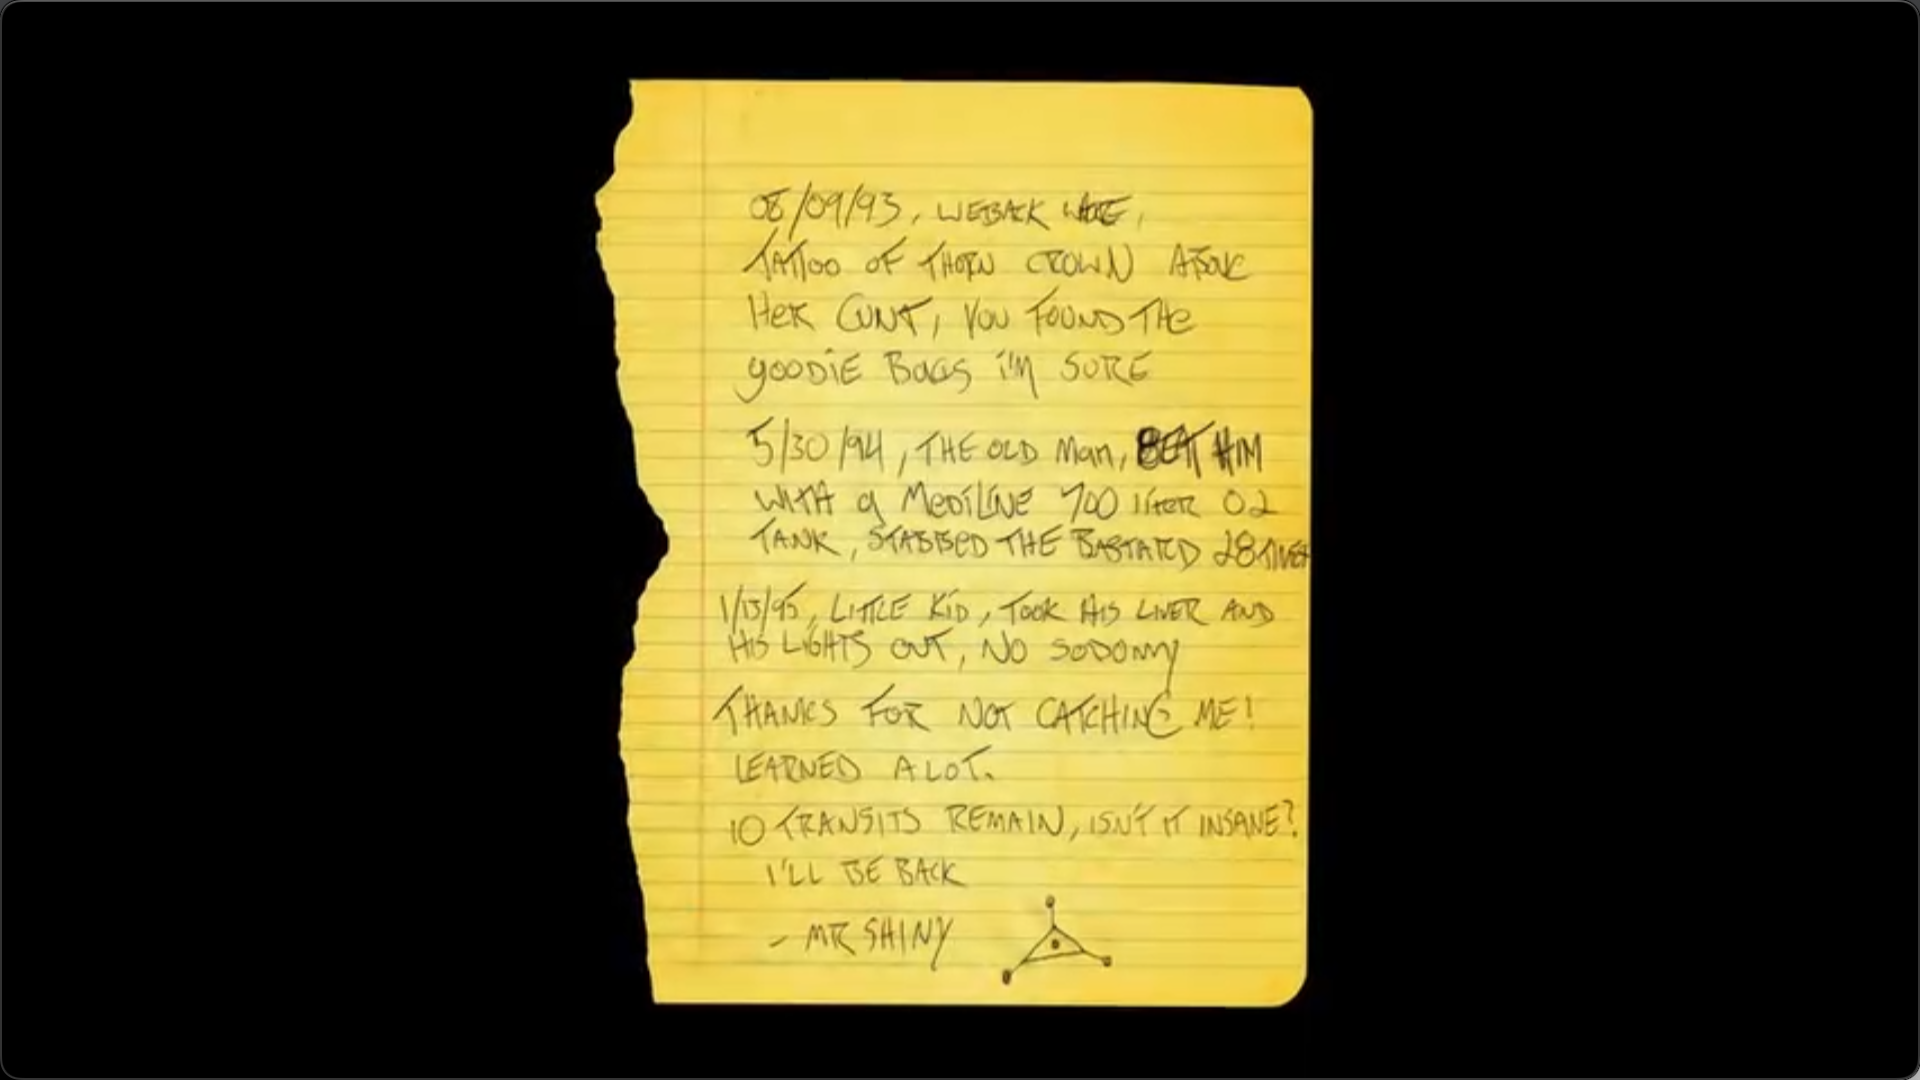 08/09/93, WEBACK WHORE,
TATTOO OF THORN CROWN ABOVE
HER CUNT, YOU FOUND THE
GOODIE BAGS I'M SURE
5/30/94, THE OLD MAN, BEAT HIM
WITH a MEDILINE 700 liter O2
TANK, STABBED THE BASTARD 28 TIMES
1/13/95, LITTLE KID, TOOK HIS LIVER AND
HIS LIGHTS OUT, NO SODOMY
THANKS FOR NOT CATCHING ME!
LEARNED A LOT.
10 TRANSITS REMAIN, ISN'T IT INSANE?
I'LL BE BACK
- MR SHINY